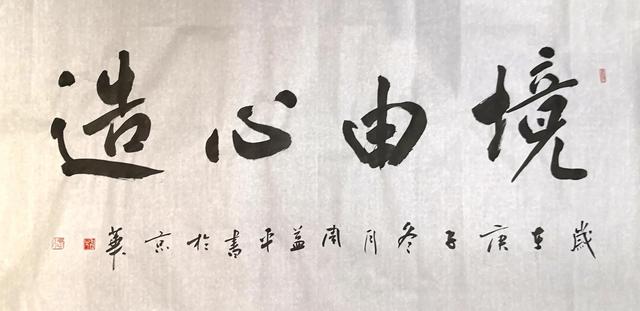 境由心造
歲在庚子冬月周益平書於京華